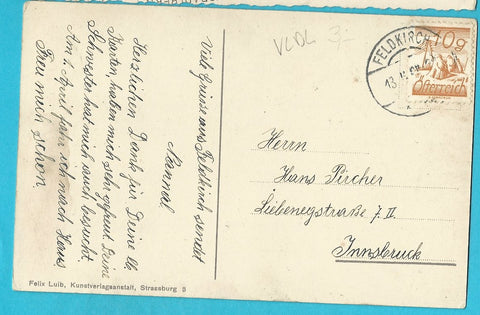 VLDL 3,-
FELDKIRCH 1
10g
Österreich
Viele Grüsse aus Feldkirch sendet
Herzlichen Dank für Deine lb.
Karten, haben mich sehr gefreut. Deine
Schwester hat mich auch besucht.
Am 1. April fahr ich nach Haus
Freu mich schon
Herrn
Hans Pircher
Liebeneggstraße 7. II.
Innsbruck
Felix Luib, Kunstverlagsanstalt, Strassburg 3